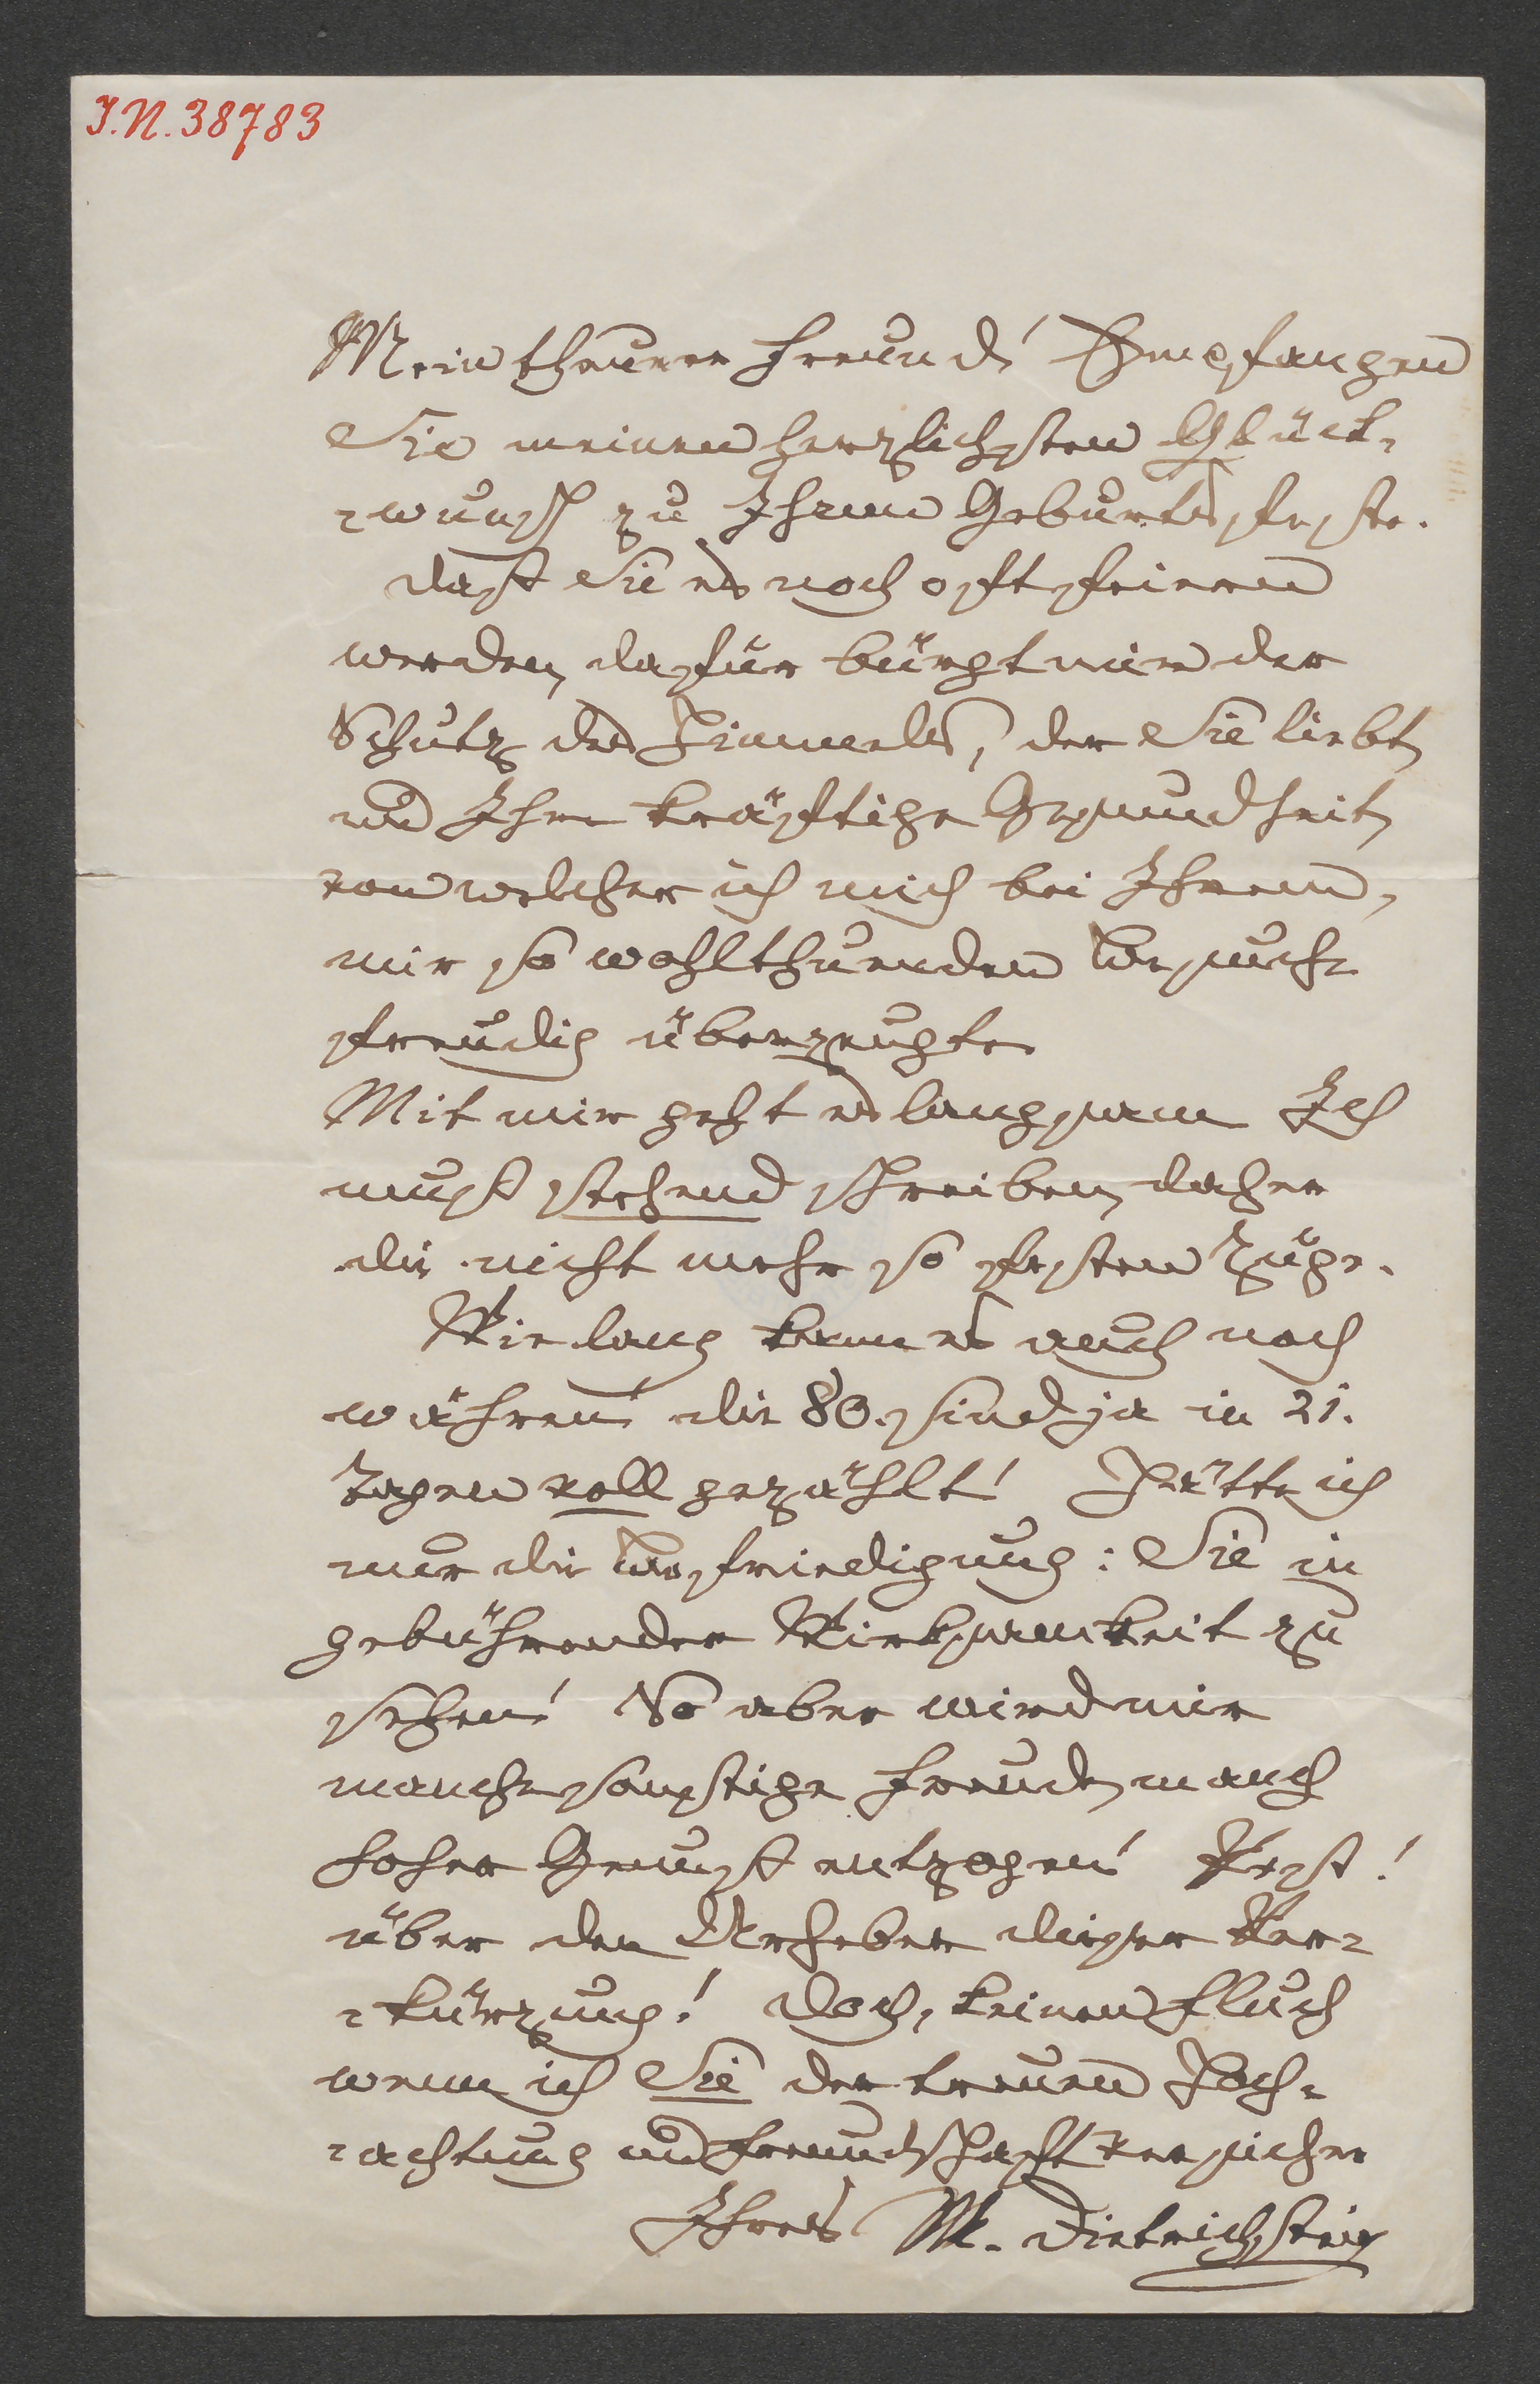 I.N. 38783
Mein theurer Freund! Empfangen
Sie meinen herzlichsten Glück-
-wunsch zu Ihrem Geburtsfeste.
Daß Sie es noch oft feiern
werden, dafür bürgt mir der
Schutz des Himmels, der Sie liebt,
und Ihre kräftige Gesundheit,
von welcher ich mich bei Ihrem,
mir so wohlthuenden Besuche
freudig überzeugte.
Mit mir geht es langsam. Ich
muß stehend schreiben, daher
die nicht mehr so festen Züge.
Wie lang kann es auch noch
währen! die 80. sind ja in 21.
Tagen voll gezählt! Hätte ich
nur die Befriedigung: Sie in
gebührender Wirksamkeit zu
sehen! So aber wird mir
manche sonstige Freude, manch
hoher Genuß entzogen! Pest!
über den Urheber dieser Ver-
-kürzung! Doch, keinen Fluch
wenn ich Sie der treuen Hoch-
-achtung und Freundschaft versichere
Ihres M. Dietrichstein